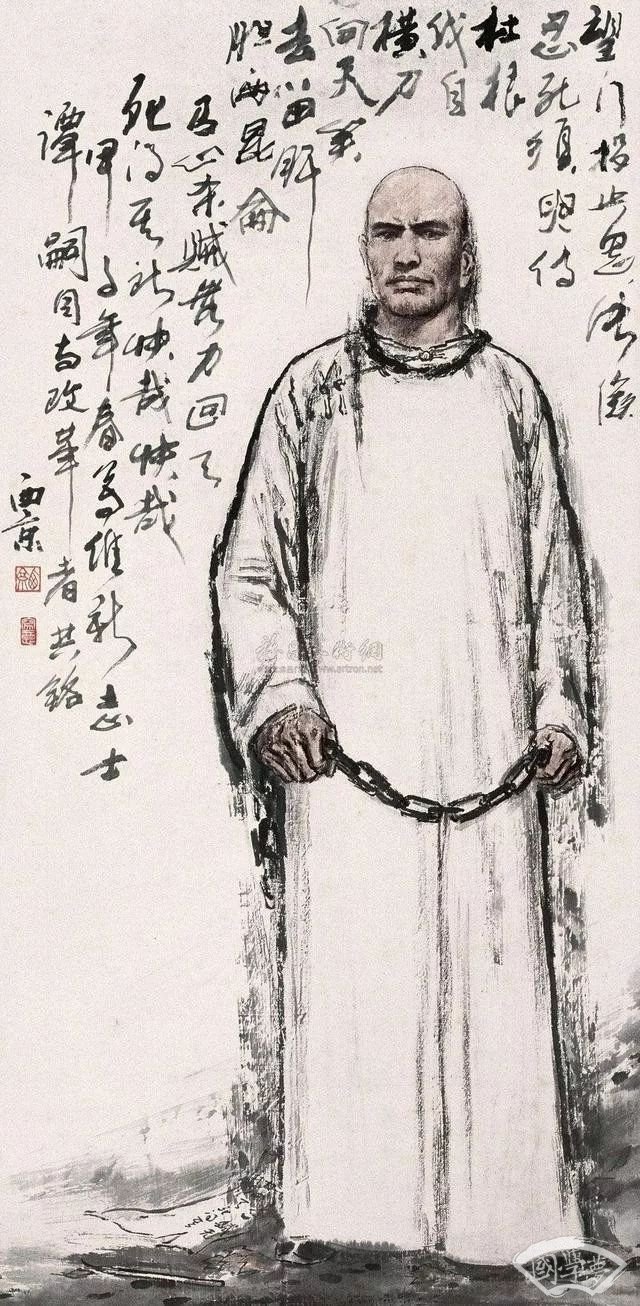 望门投止思张俭
忍死须臾待
杜根
我自
横刀
向天笑
去留肝
胆两昆仑
有心杀贼无力回天
死得其所快哉快哉
甲子年春为维新志士
谭嗣同与改革者共铭
西京
雅昌艺术网
www.artron.net
國學典